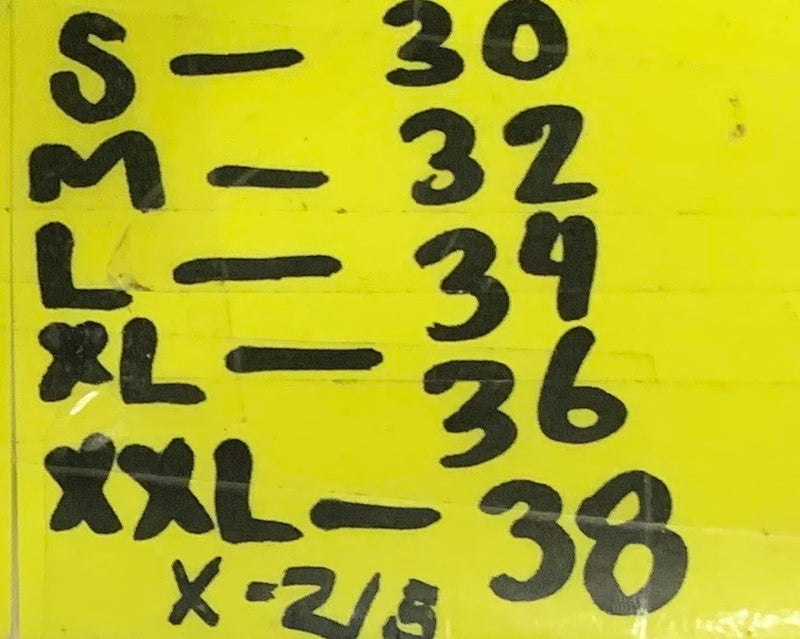 S — 30
M — 32
L — 34
XL — 36
XXL — 38